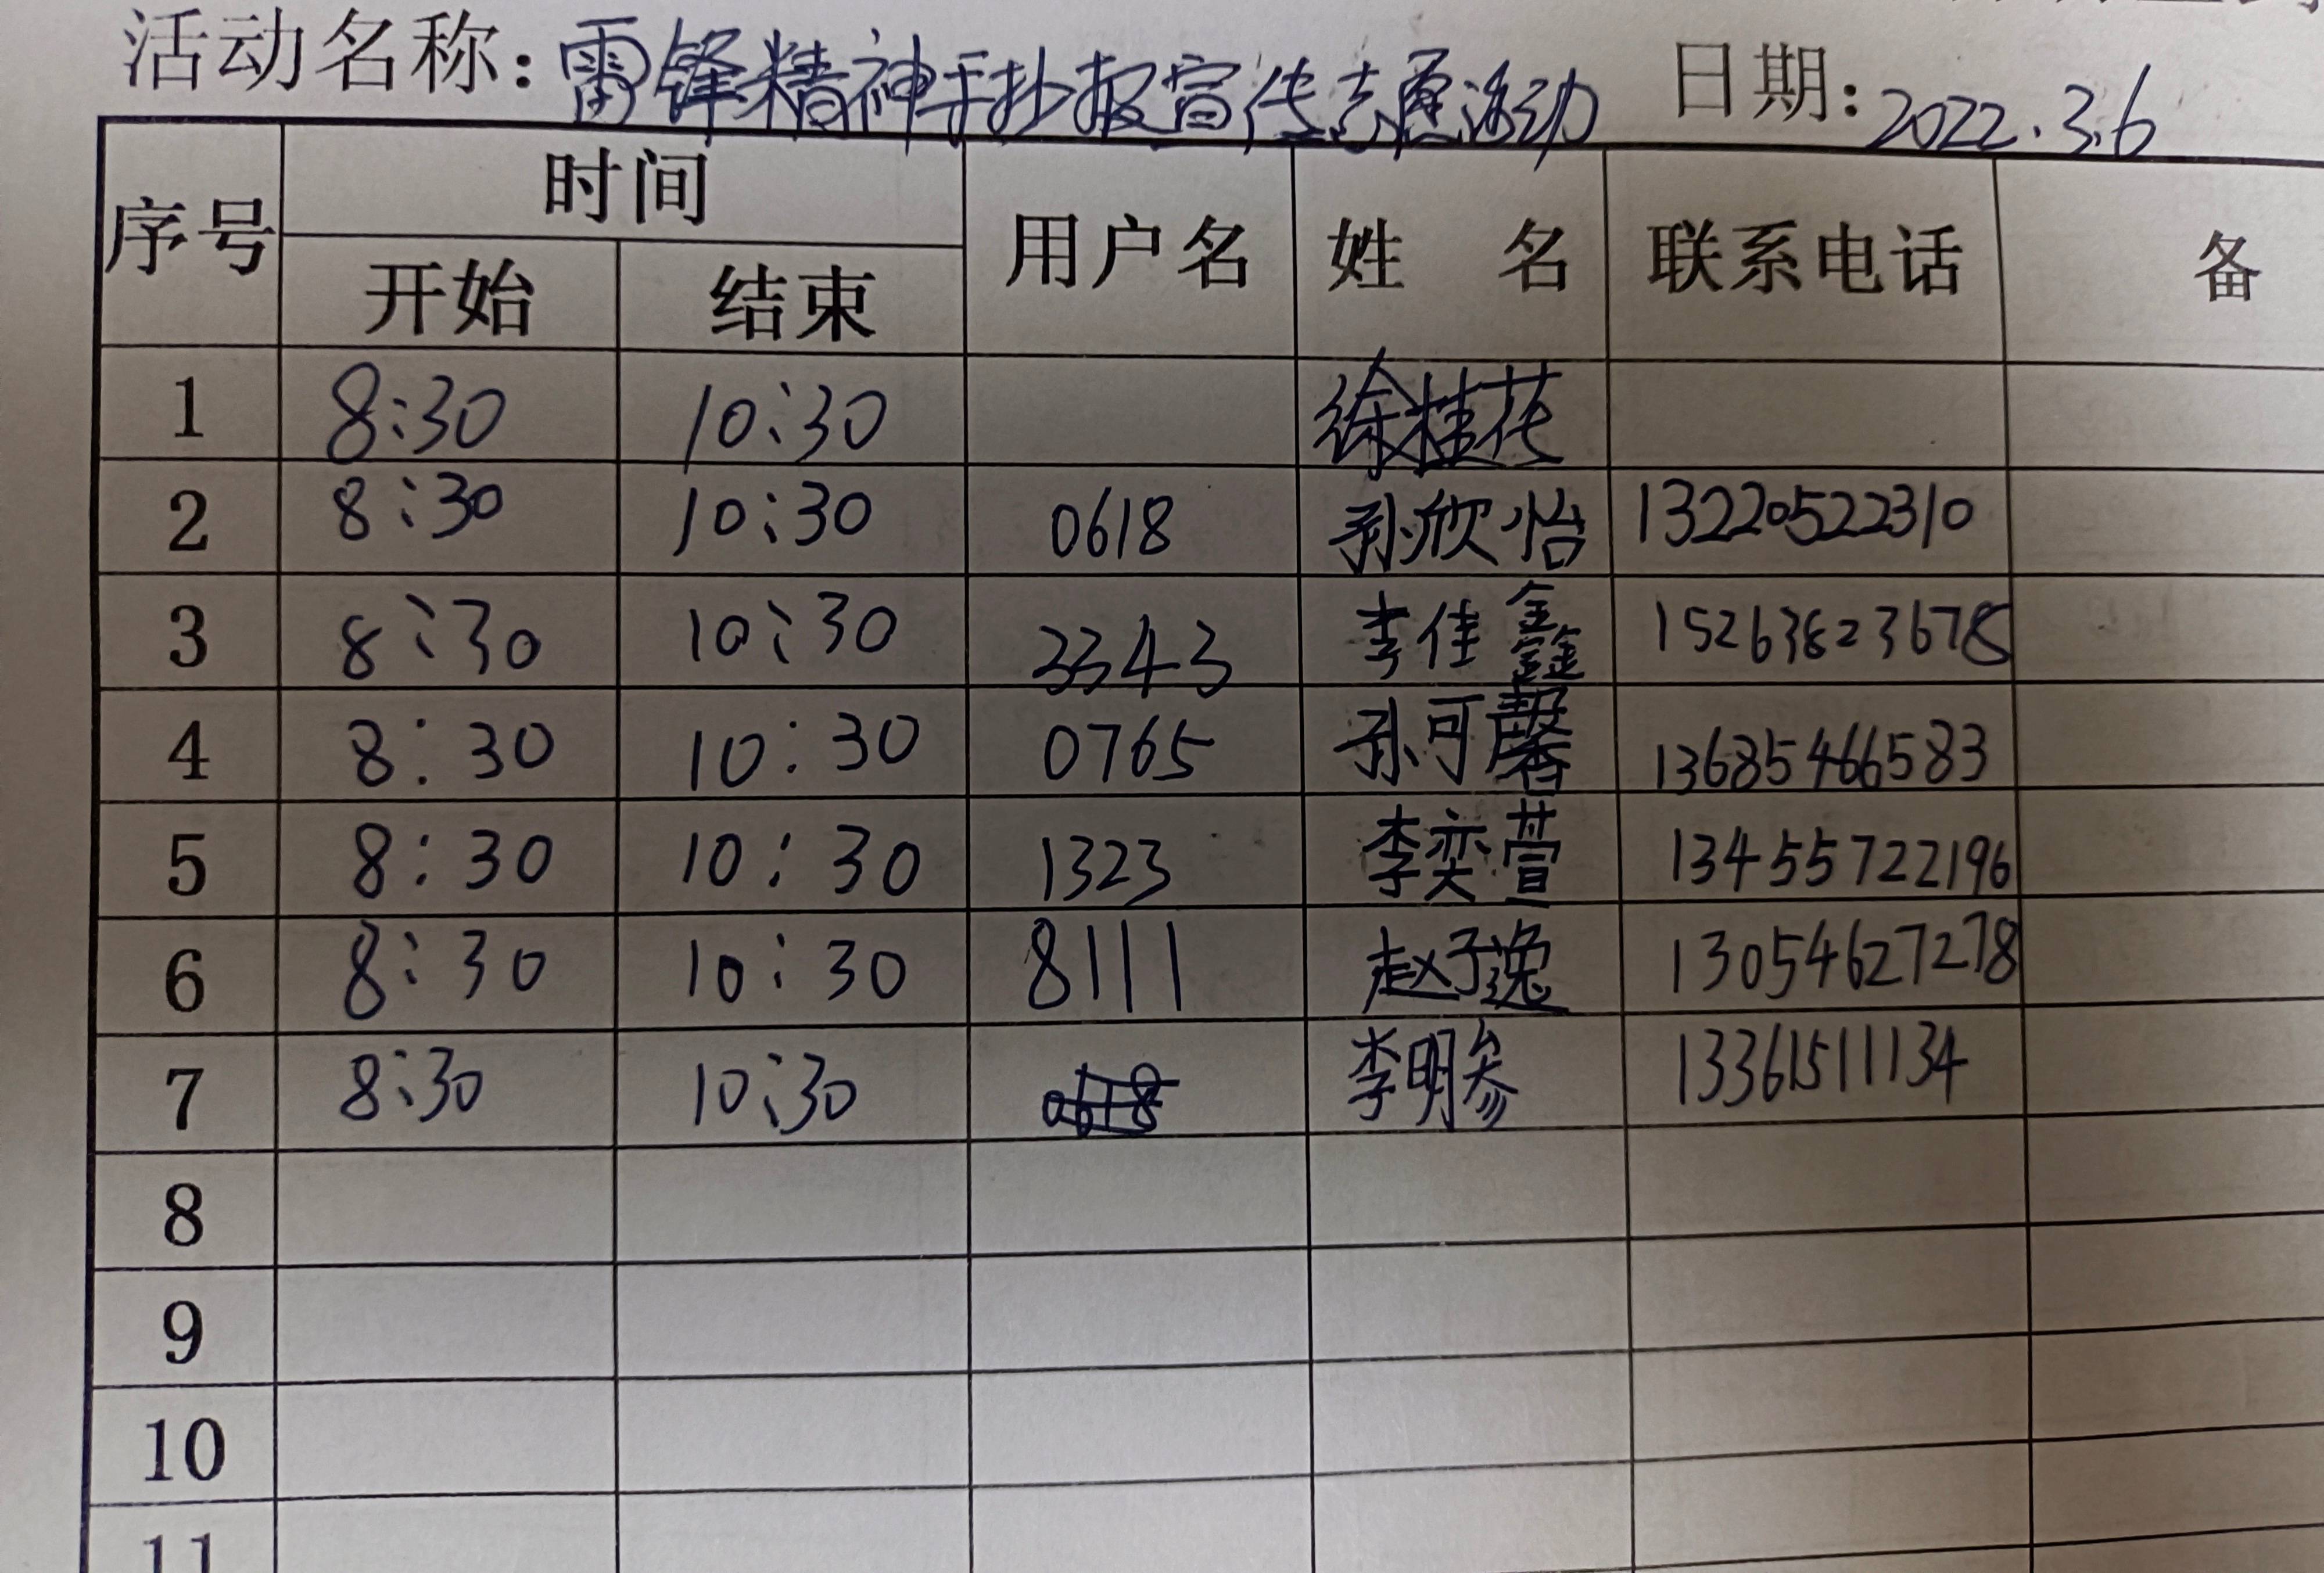 活动名称：雷锋精神手抄报宣传志愿活动 日期：2022.3.6
序号 时间 用户名 姓 名 联系电话 备
开始 结束
1 8:30 10:30 徐桂花
2 8:30 10:30 0618 孙欣怡 13220522310
3 8:30 10:30 2343 李佳鑫 15263823678
4 8:30 10:30 0765 孙可馨 13685466583
5 8:30 10:30 1323 李奕萱 13455722196
6 8:30 10:30 8111 赵子逸 13054627278
7 8:30 10:30 李明参 13361511134
8
9
10
11